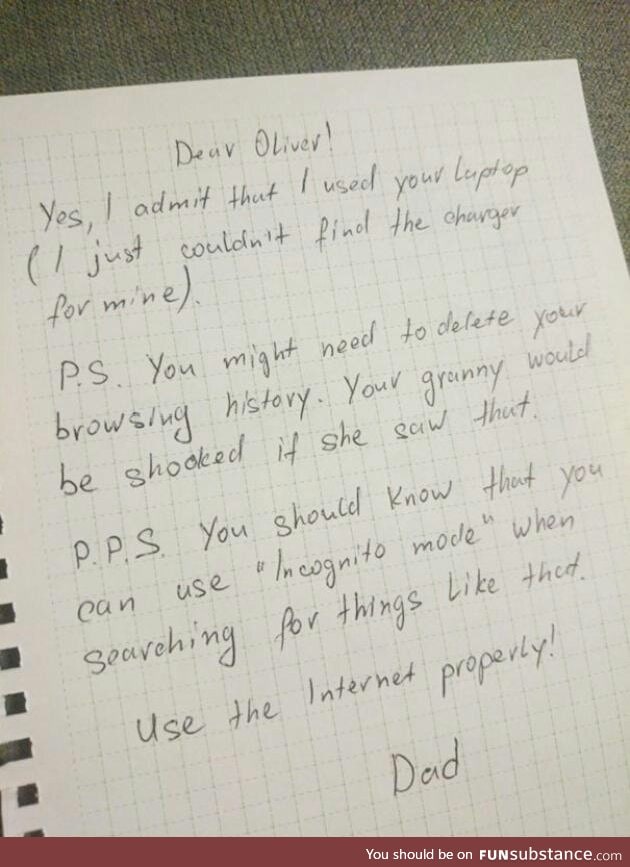 Dear Oliver!
Yes, I admit that I used your laptop
(I just couldn't find the charger
for mine).
P.S. You might need to delete your
browsing history. Your granny would
be shooked if she saw that.
P.P.S. You should know that you
can use "Incognito mode" when
searching for things like that.
Use the Internet properly!
Dad
You should be on FUNsubstance.com